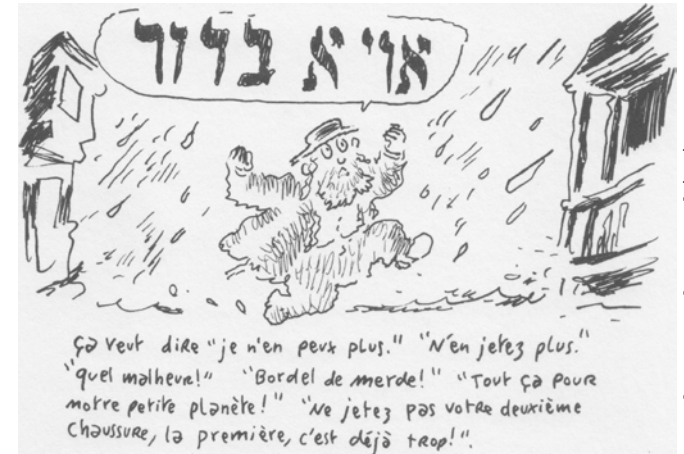 אוי א ברוך
ça veut dire "je n'en peux plus." "N'en jetez plus."
"quel malheur!" "Bordel de merde!" "Tout ça pour
notre petite planète!" "Ne jetez pas votre deuxième
chaussure, la première, c'est déjà trop!".